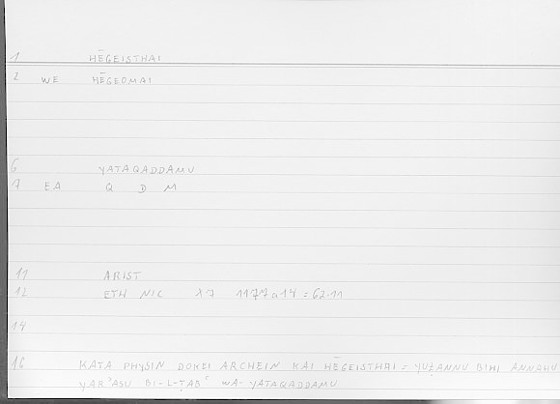 1 HĒGEISTHAI
2 WE HĒGEOMAI
6 YATAQADDAMU
7 EA Q D M
11 ARIST
12 ETH NIC X7 1177a14 = 62.11
14
16 KATA PHYSIN DOKEI ARCHEIN KAI HĒGEISTHAI = YUẒANNU BIHI ANNAHU
YARʾASU BI-L-ṬABʿ WA-YATAQADDAMU